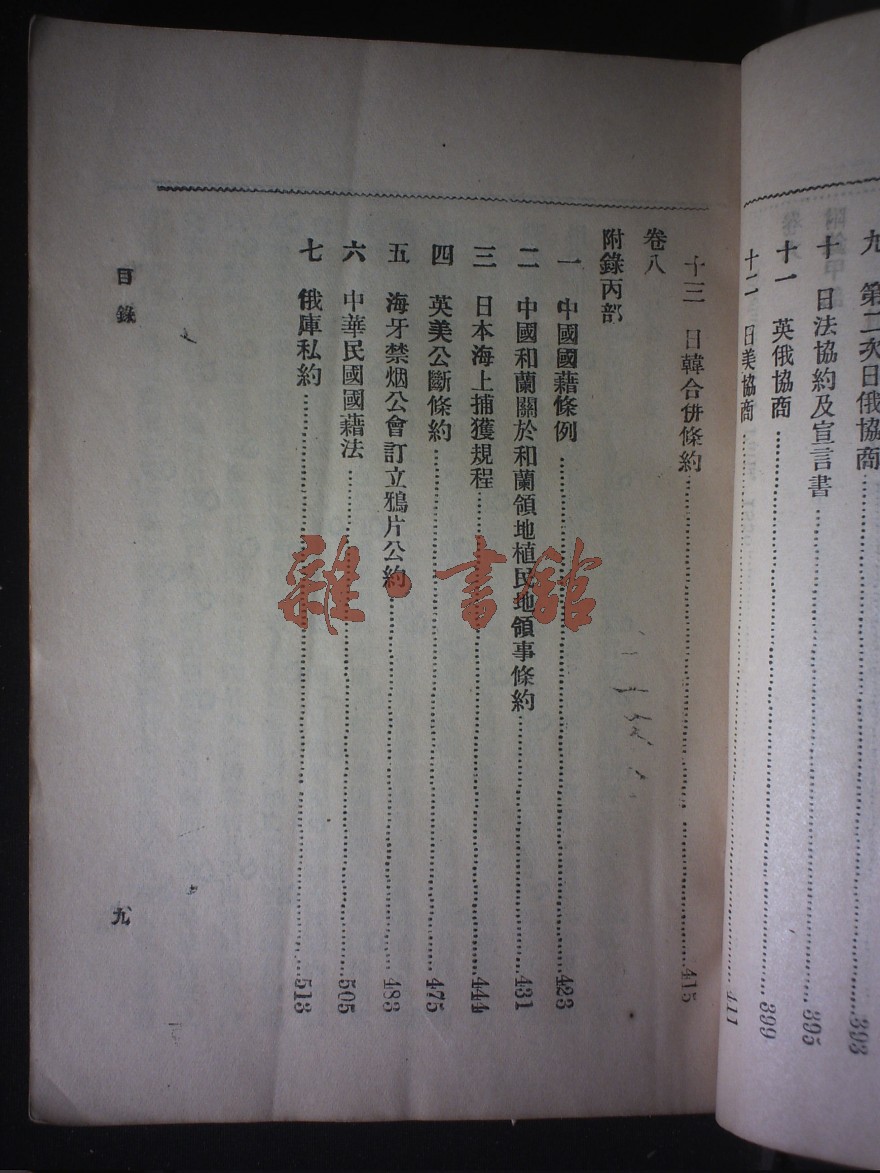 九　第二次日俄協商……393
十　日法協約及宣言書……395
十一　英俄協商……399
十二　日美協商……411
十三　日韓合併條約……415
卷八
附錄丙部
一　中國國藉條例……423
二　中國和蘭關於和蘭領地植民地領事條約……431
三　日本海上捕獲規程……444
四　英美公斷條約……475
五　海牙禁烟公會訂立鴉片公約……483
六　中華民國國藉法……505
七　俄庫私約……513
目錄
九
雜·書館